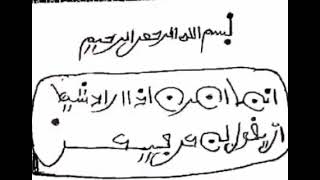 بسم الله الرحمن الرحيم
انما امره اذا اراد شيئا
ان يقول له